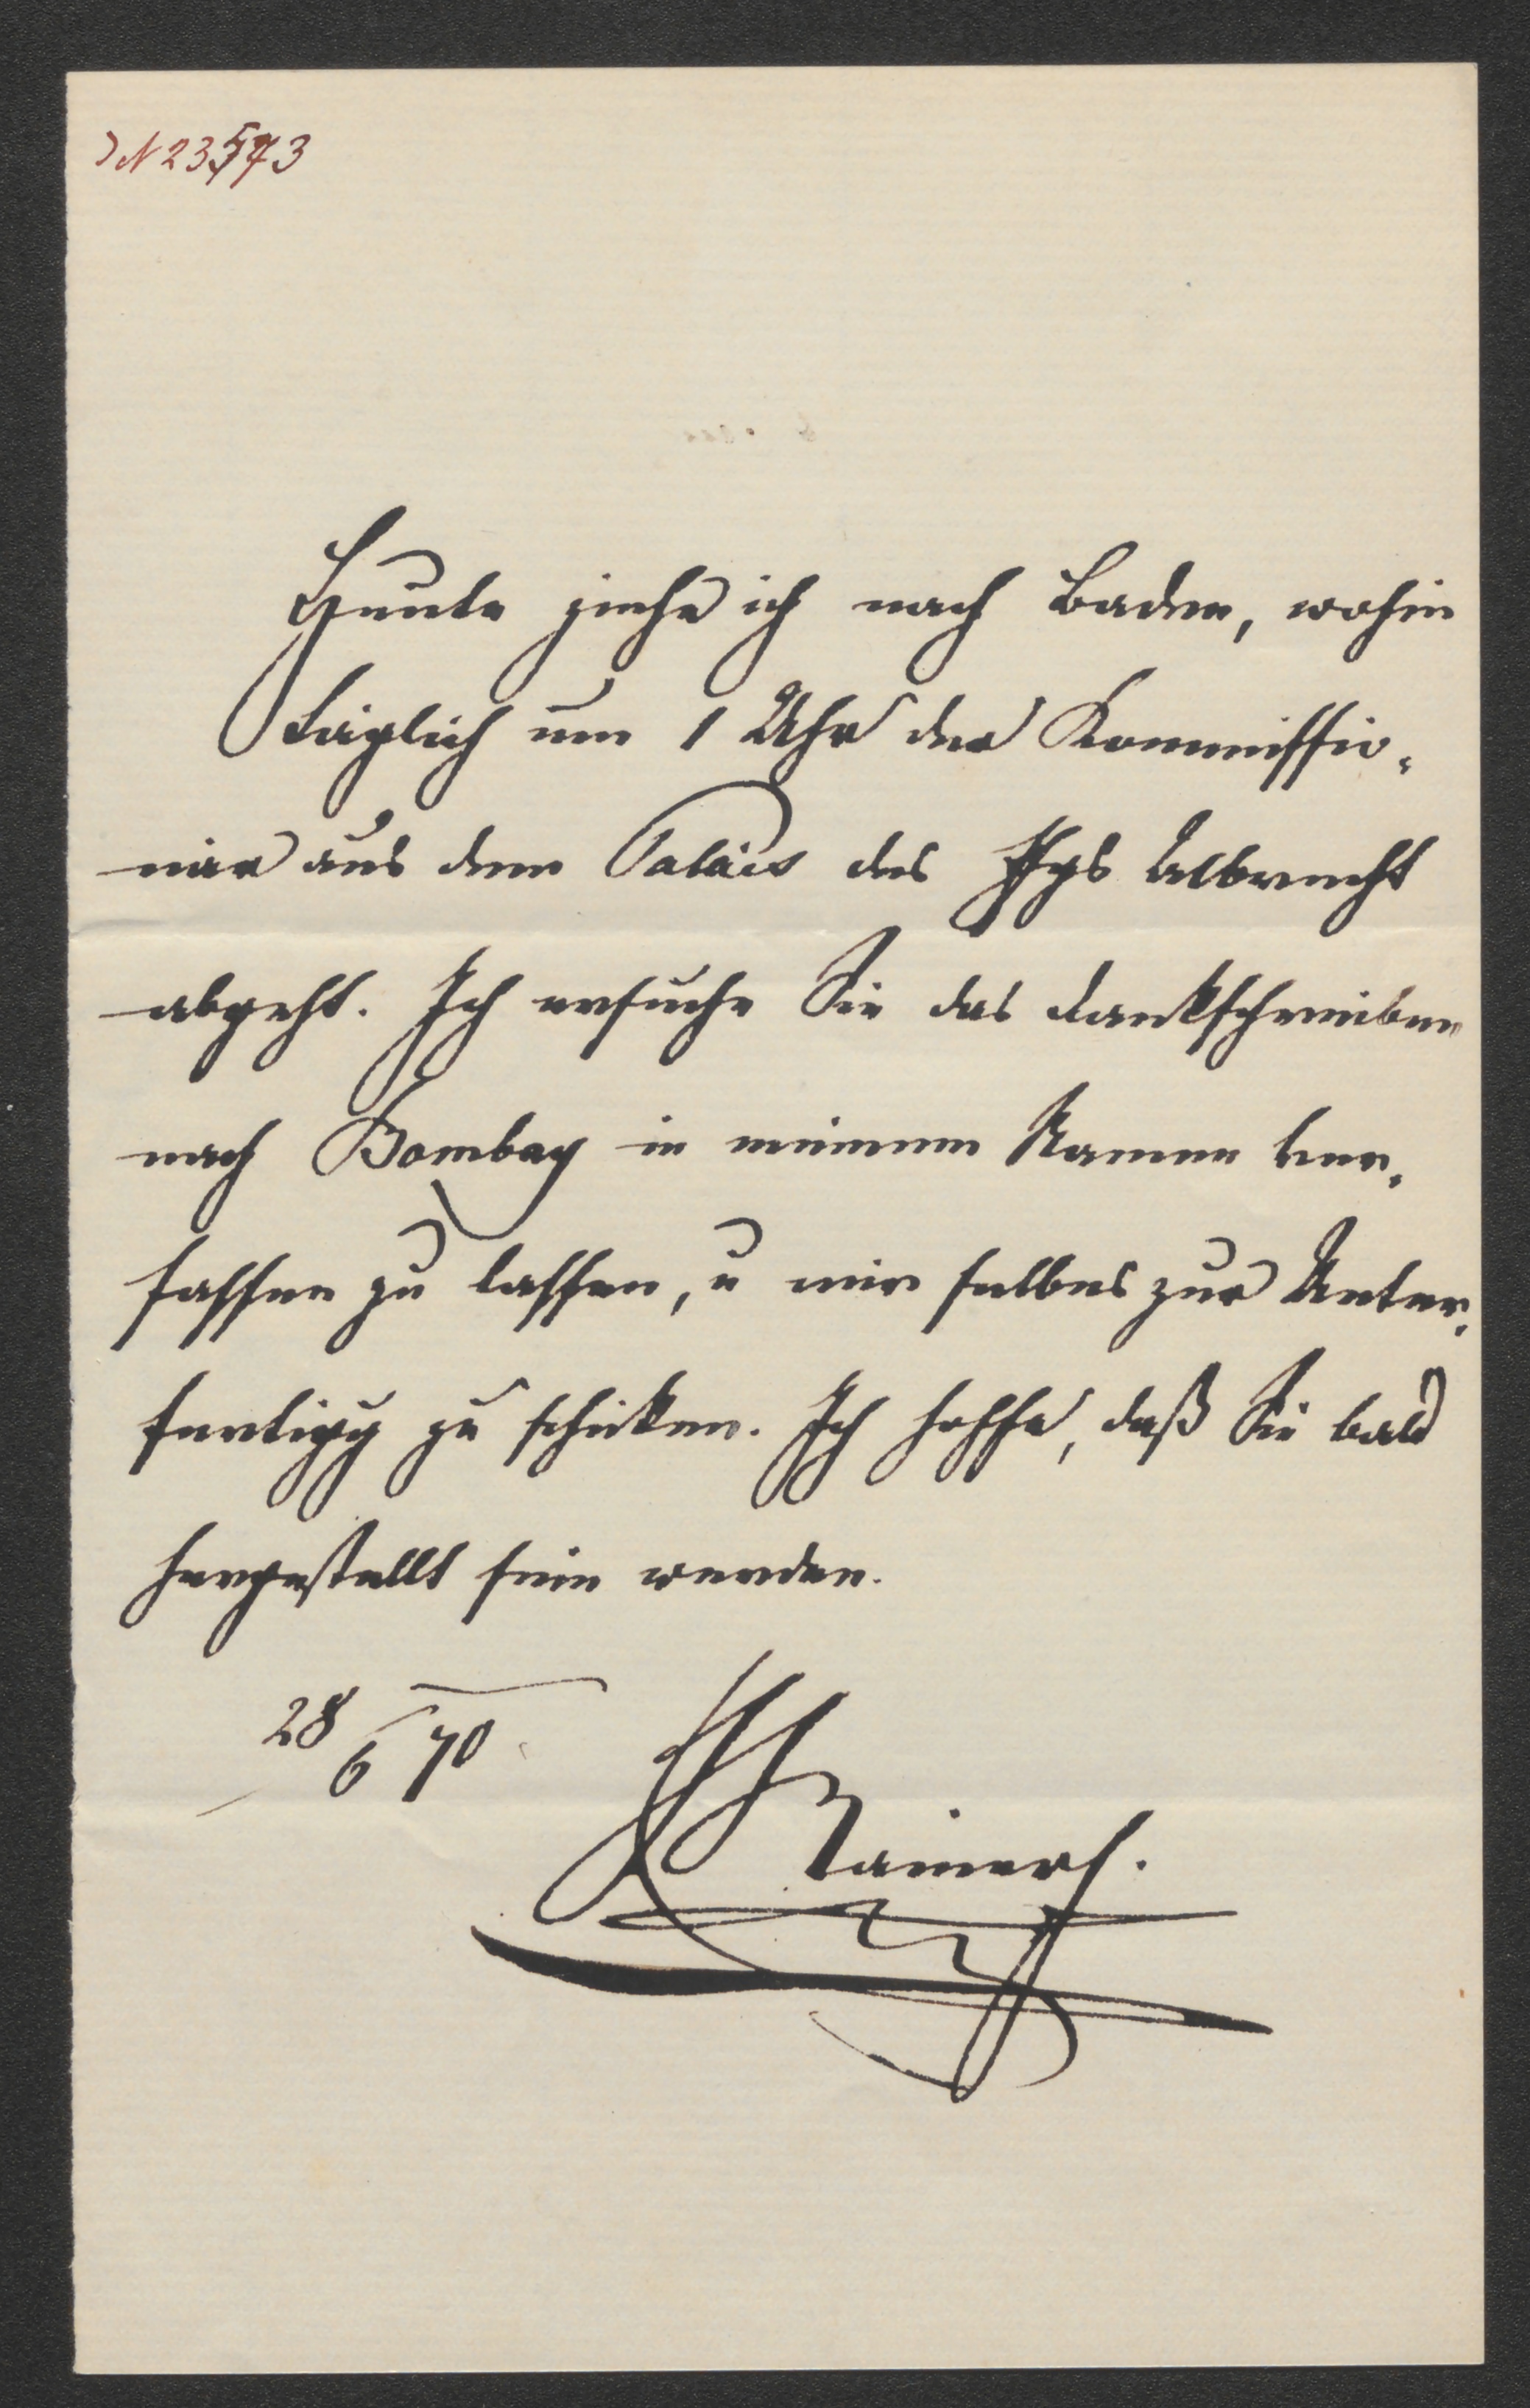 JN 23573
Heute ziehe ich nach Baden, wohin
täglich um 1 Uhr der Kommissio-
när aus dem Palais des Ehgs Albrecht
abgeht. Ich ersuche Sie das Dankschreiben
nach Bombay in meinem Namen ver-
fassen zu lassen, u mir selbes zur Unter-
fertigg zu schicken. Ich hoffe, daß Sie bald
hergestellt sein werden.
28/6 70
Rainer